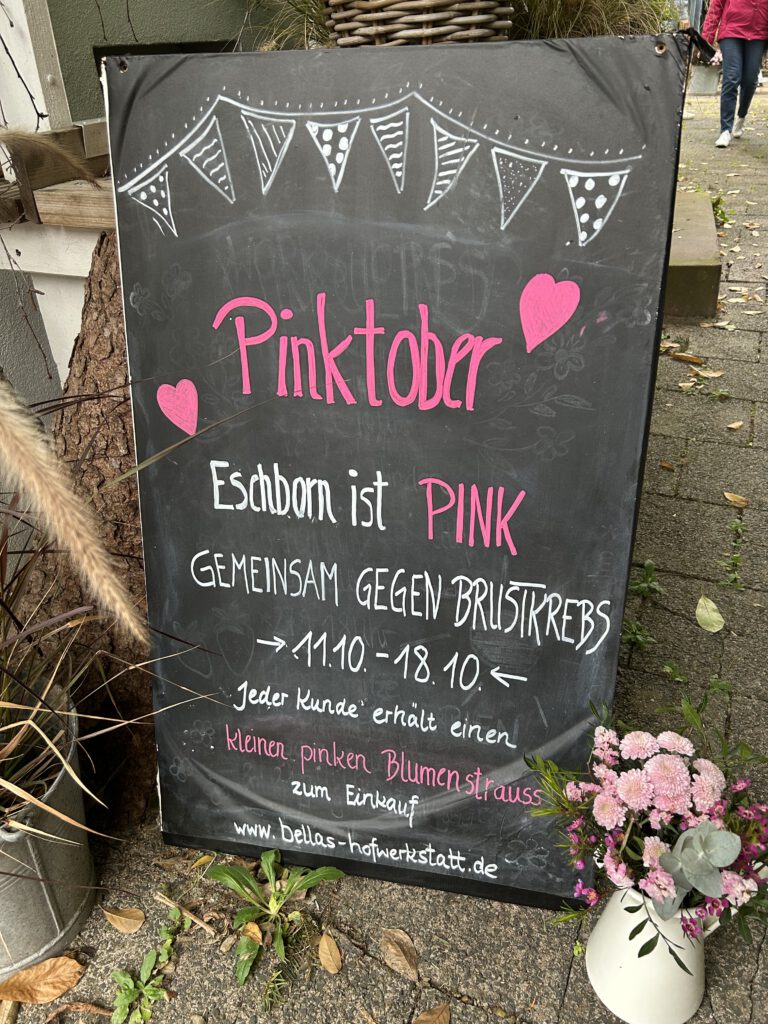 Pinktober
Eschborn ist PINK
GEMEINSAM GEGEN BRUSTKREBS
→ 11.10. - 18.10. ←
Jeder Kunde erhält einen
kleinen pinken Blumenstrauss
zum Einkauf
www.bellas-hofwerkstatt.de